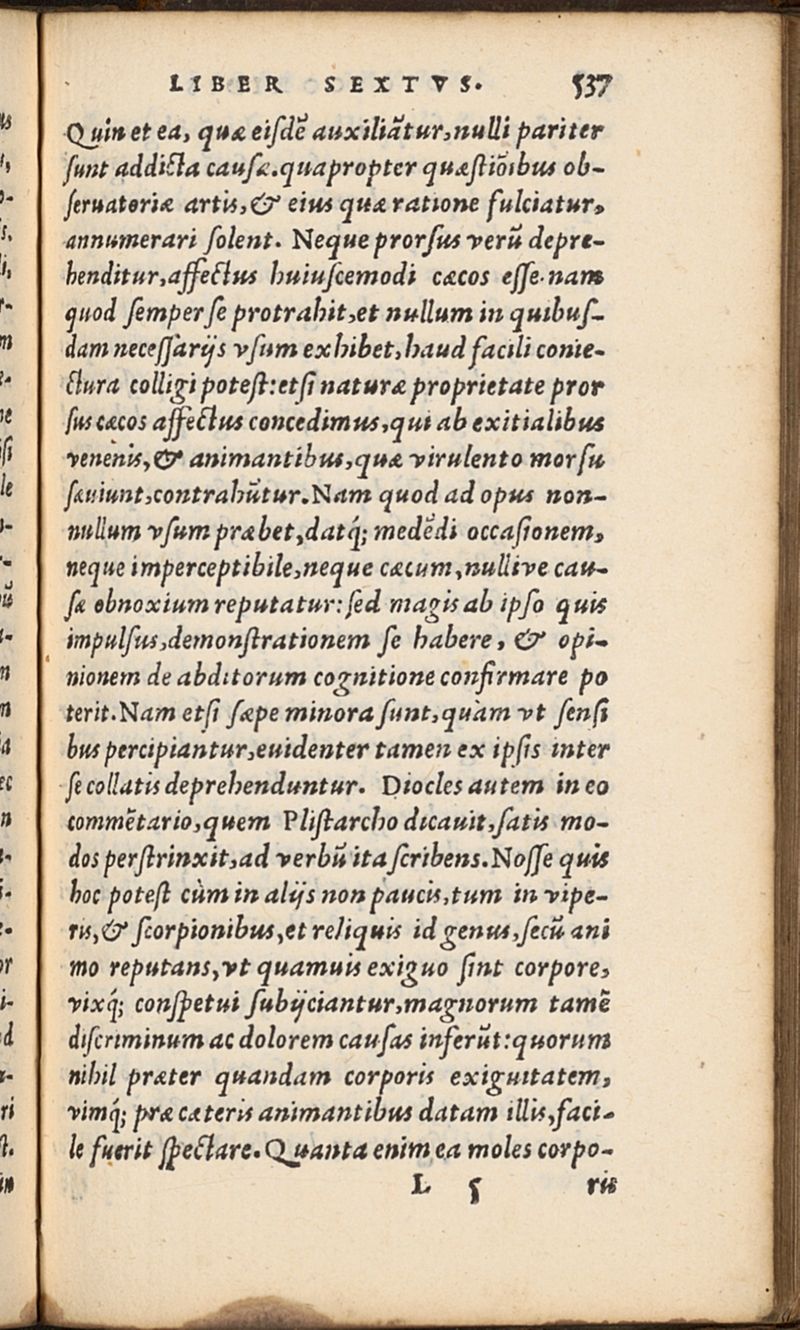 LIBER SEXTVS. 537
Quin et ea, quæ eiſdē auxiliātur, nulli pariter
ſunt addicta cauſæ. quapropter quæſtiōibus ob-
ſeruatoriæ artis, & eius quæ ratione fulciatur,
annumerari ſolent. Neque prorſus verū depre-
henditur, affectus huiuſcemodi cæcos eſſe. nam
quod ſemper ſe protrahit, et nullum in quibuſ-
dam neceſſarijs vſum exhibet, haud facili conie-
ctura colligi poteſt: etſi naturæ proprietate pror
ſus cæcos affectus concedimus, qui ab exitialibus
venènis, & animantibus, quæ virulento morſu
ſæuiunt, contrahūtur. Nam quod ad opus non-
nullum vſum præbet, datq́; medēdi occaſionem,
neque imperceptibile, neque cæcum, nullive cau-
ſæ obnoxium reputatur: ſed magis ab ipſo quis
impulſus, demonſtrationem ſe habere, & opi-
nionem de abditorum cognitione confirmare po
terit. Nam etſi ſæpe minora ſunt, quàm vt ſenſi
bus percipiantur, euidenter tamen ex ipſis inter
ſe collatis deprehenduntur. Diocles autem in eo
commētario, quem Pliſtarcho dicauit, ſatis mo-
dos perſtrinxit, ad verbū ita ſcribens. Noſſe quis
hoc poteſt cùm in alijs non paucis, tum in vipe-
ris, & ſcorpionibus, et reliquis id genus, ſecū ani
mo reputans, vt quamuis exiguo ſint corpore,
vixq́; conſpetui ſubijciantur, magnorum tamē
diſcriminum ac dolorem cauſas inferūt: quorum
nihil præter quandam corporis exiguitatem,
vimq́; præ cæteris animantibus datam illis, faci-
le fuerit ſpectare. Quanta enim ea moles corpo-
L 5 ris